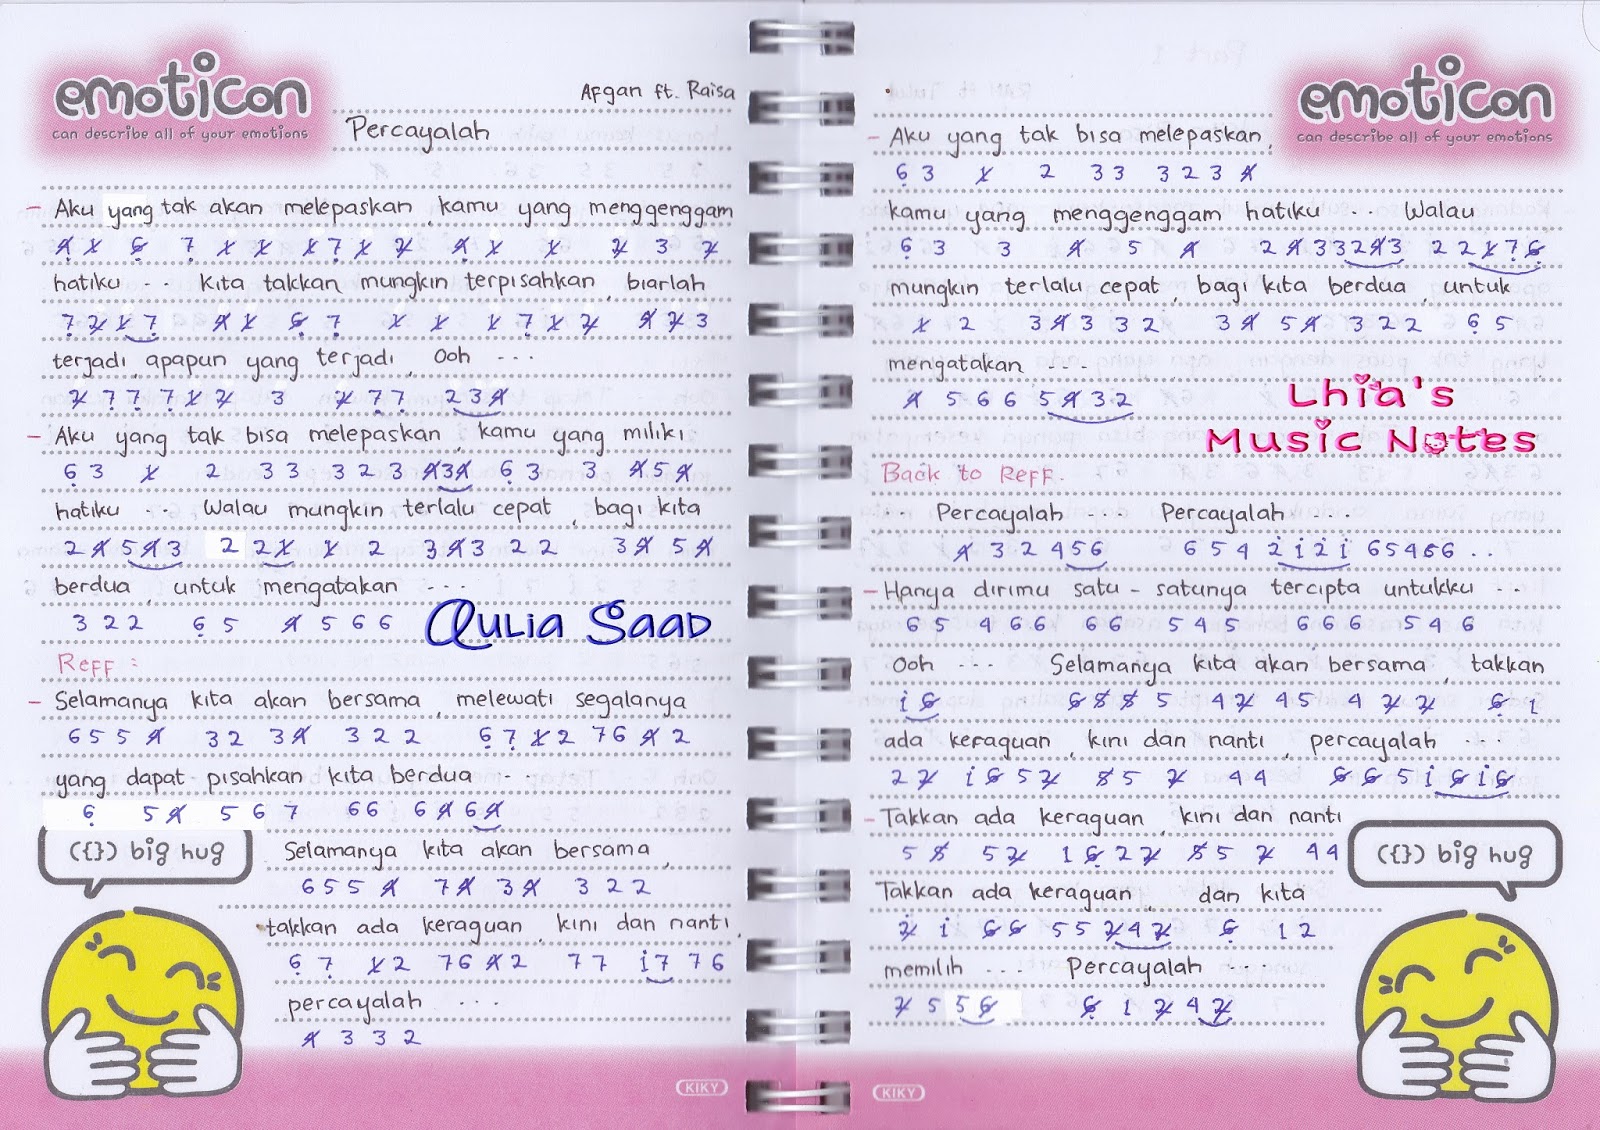 emoticon
can describe all of your emotions
Afgan ft. Raisa
Percayalah
- Aku yang tak akan melepaskan, kamu yang menggenggam
4 1 6 7 1 1 1 7 1 2 4 1 1 2 3 2
hatiku ... Kita takkan mungkin terpisahkan, biarlah
7 2 1 7 4 1 6 7 1 1 1 7 1 2 4 2 3
terjadi, apapun yang terjadi, Ooh ...
2 7 7 7 1 2 3 2 7 7 2 3 4
- Aku yang tak bisa melepaskan, kamu yang miliki
6 3 1 2 3 3 3 2 3 4 3 4 6 3 3 4 5 4
hatiku ... Walau mungkin terlalu cepat, bagi kita
2 4 5 4 3 2 2 1 1 2 3 4 3 2 2 3 4 5 4
berdua, untuk mengatakan ...
3 2 2 6 5 4 5 6 6
Qulia Saad
Reff :
- Selamanya kita akan bersama, melewati segalanya
6 5 5 4 3 2 3 4 3 2 2 6 7 1 2 7 6 4 2
yang dapat pisahkan kita berdua ...
6 5 4 5 6 7 6 6 6 4 6 4
({}) big hug
Selamanya kita akan bersama,
6 5 5 4 7 4 3 4 3 2 2
takkan ada keraguan, kini dan nanti,
6 7 1 2 7 6 4 2 7 7 i 7 7 6
percayalah ...
4 3 3 2
KIKY
emoticon
can describe all of your emotions
- Aku yang tak bisa melepaskan,
6 3 1 2 3 3 3 2 3 4
kamu yang menggenggam hatiku ... Walau
6 3 3 4 5 4 2 4 3 3 2 4 3 2 2 1 7 6
mungkin terlalu cepat, bagi kita berdua, untuk
1 2 3 4 3 3 2 3 4 5 4 3 2 2 6 5
mengatakan ...
4 5 6 6 5 4 3 2
Lhia's
Music Notes
Back to Reff.
Percayalah Percayalah ...
4 3 2 4 5 6 6 5 4 2 i 2 i 6 5 4 5 6 ..
- Hanya dirimu satu - satunya tercipta untukku ..
6 5 4 6 6 6 6 5 4 5 6 6 6 5 4 6
Ooh ... Selamanya kita akan bersama, takkan
i 6 6 5 5 5 4 2 4 5 4 2 2 6 1
ada keraguan, kini dan nanti, percayalah ...
2 2 i 6 5 2 5 5 2 4 4 6 6 5 i 6 i 6
- Takkan ada keraguan, kini dan nanti
5 5 5 2 1 6 2 2 5 5 2 4 4
({}) big hug
Takkan ada keraguan, dan kita
2 i 6 6 5 5 2 4 2 6 1 2
memilih ... Percayalah ...
2 5 5 6 6 1 2 4 2
KIKY